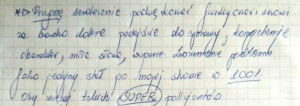 *1) Pragnę serdecznie podziękować funkcjonariuszowi
za bardzo dobre podejście do sprawy, kompetencje
charakter, miłe słowa, super zrozumienie problemu
jako jedyny stał po mojej stronie w 1001
Oby więcej takich SUPER policjantów